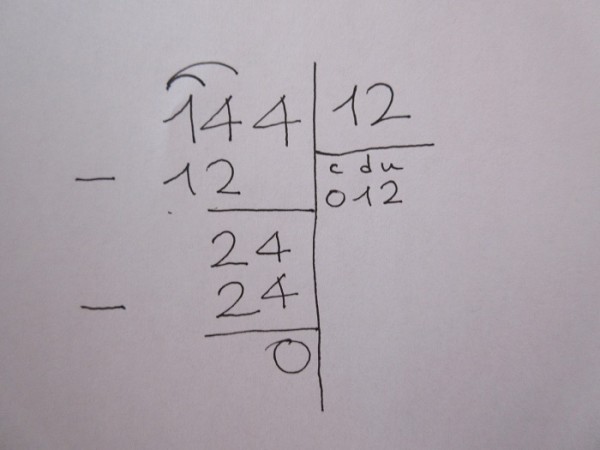 144 12
- 12 c d u
012
24
- 24
0